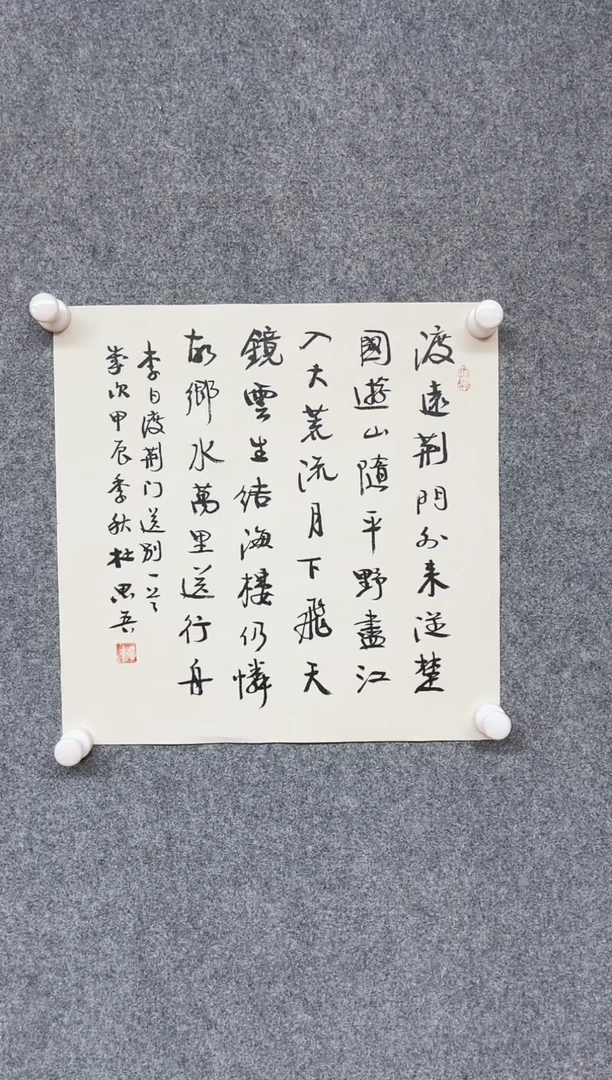 渡遠荆門外来從楚
國遊山隨平野盡江
入大荒流月下飛天
鏡雲生结海樓仍憐
故鄉水萬里送行舟
李白渡荆门送别一首
岁次甲辰季秋杜思吾